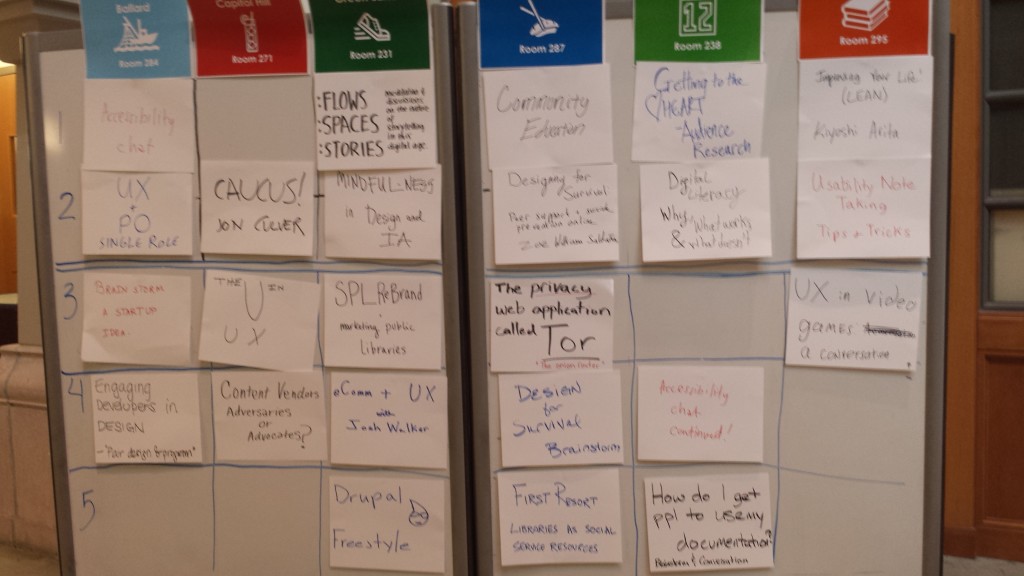 Ballard
Room 284
Capitol Hill
Room 271
Room 231
Room 287
12
Room 238
Room 295
1
Accessibility
chat
:FLOWS
:SPACES
:STORIES
Community
Edention
Getting to the
HEART
Audience
Research
Improving Your Life!
(LEAN)
Kiyoshi Arita
2
UX
+
PO
SINGLE ROLE
CAUCUS!
JON CULVER
MINDFUL-NESS
in Design and
IA
Designing for
Survival
Peer support +
prevention online
Zoe William
Digital
Literacy
Why, What works
& what doesn't
Usability Note
Taking
Tips & Tricks
3
BRAIN STORM
A STARTUP
IDEA.
THE U IN
UX
SPL ReBrand
marketing public
Libraries
The privacy
web application
called Tor
UX in Video
games
a conversation
4
Engaging
Developers in
DESIGN
Content Vendors
Adversaries
or
Advocates?
eComm + UX
with
Josh Walker
DESIGN
for
Survival
Brainstorm
Accessibility
chat
continued!
5
Drupal
Freestyle
FIRST RESORT
LIBRARIES AS SOCIAL
SERVICE RESOURCES
How do I get
ppl to use my
documentation?
Conversation